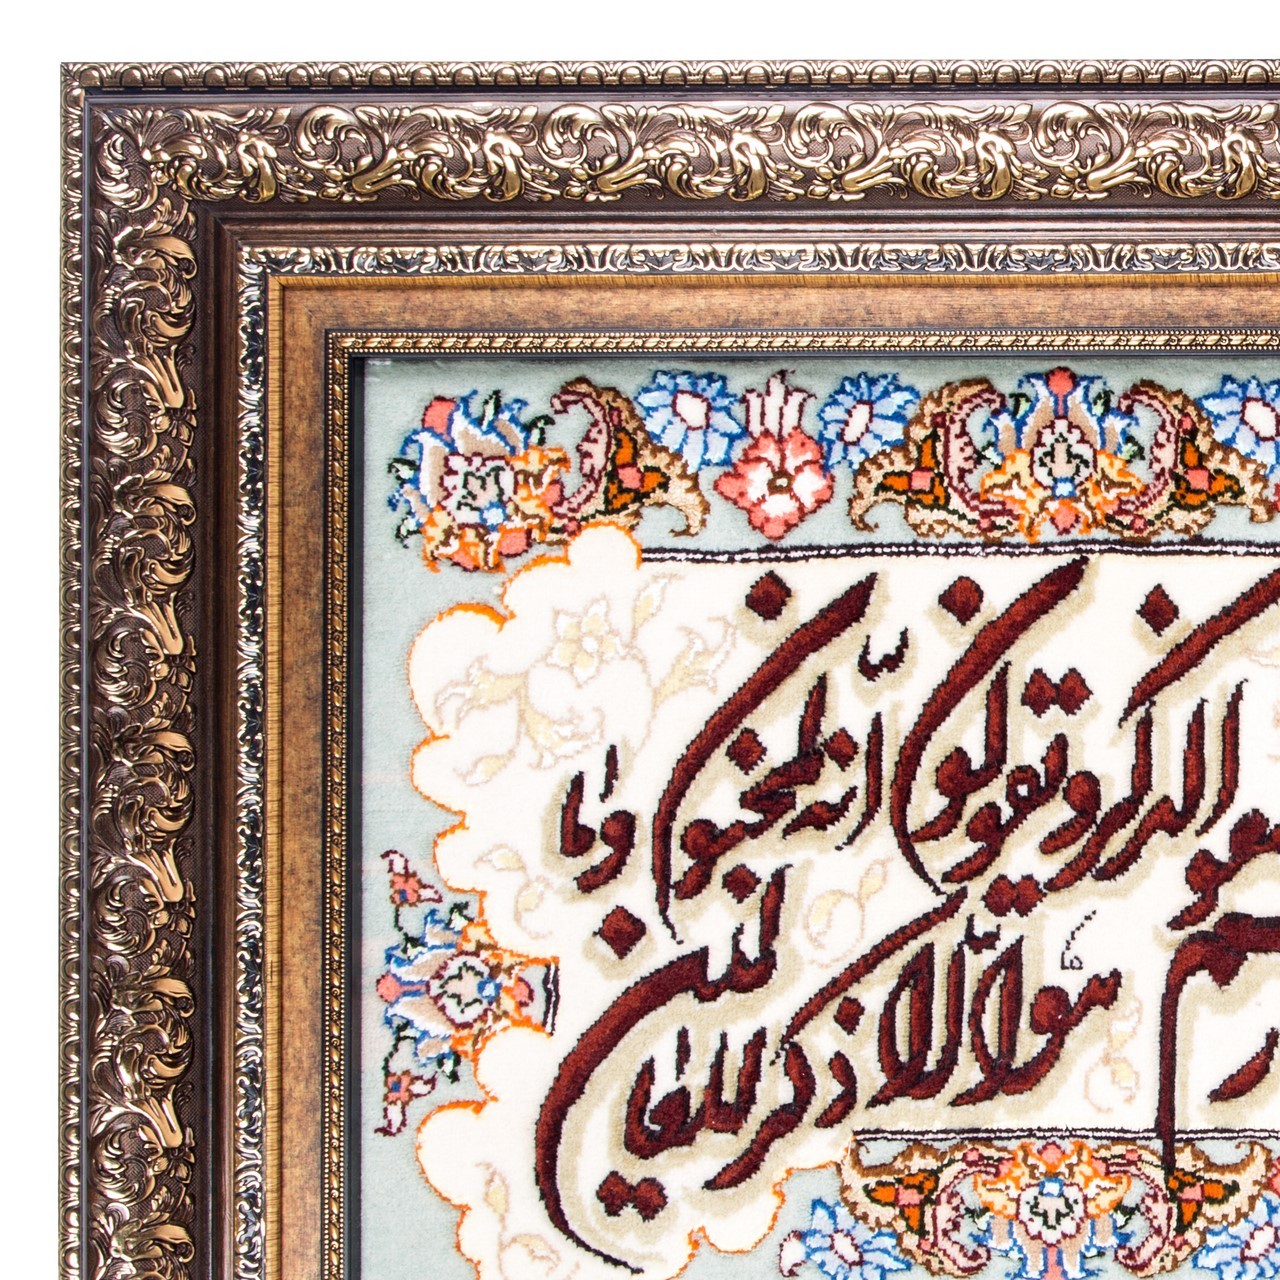 سمعوا الذکر و یقولون انه لمجنون و ما
هو الا ذکر للعالمین